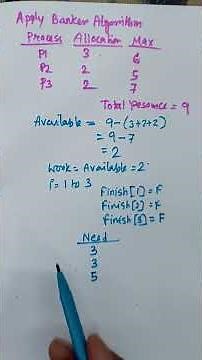 Apply Banker Algorithm
Process Allocation Max
P1 3 6
P2 2 5
P3 2 7
Total Resource = 9
Available = 9-(3+2+2)
= 9-7
= 2
Work = Available = 2
i = 1 to 3
Finish[1] = F
Finish[2] = F
Finish[3] = F
Need
3
3
5